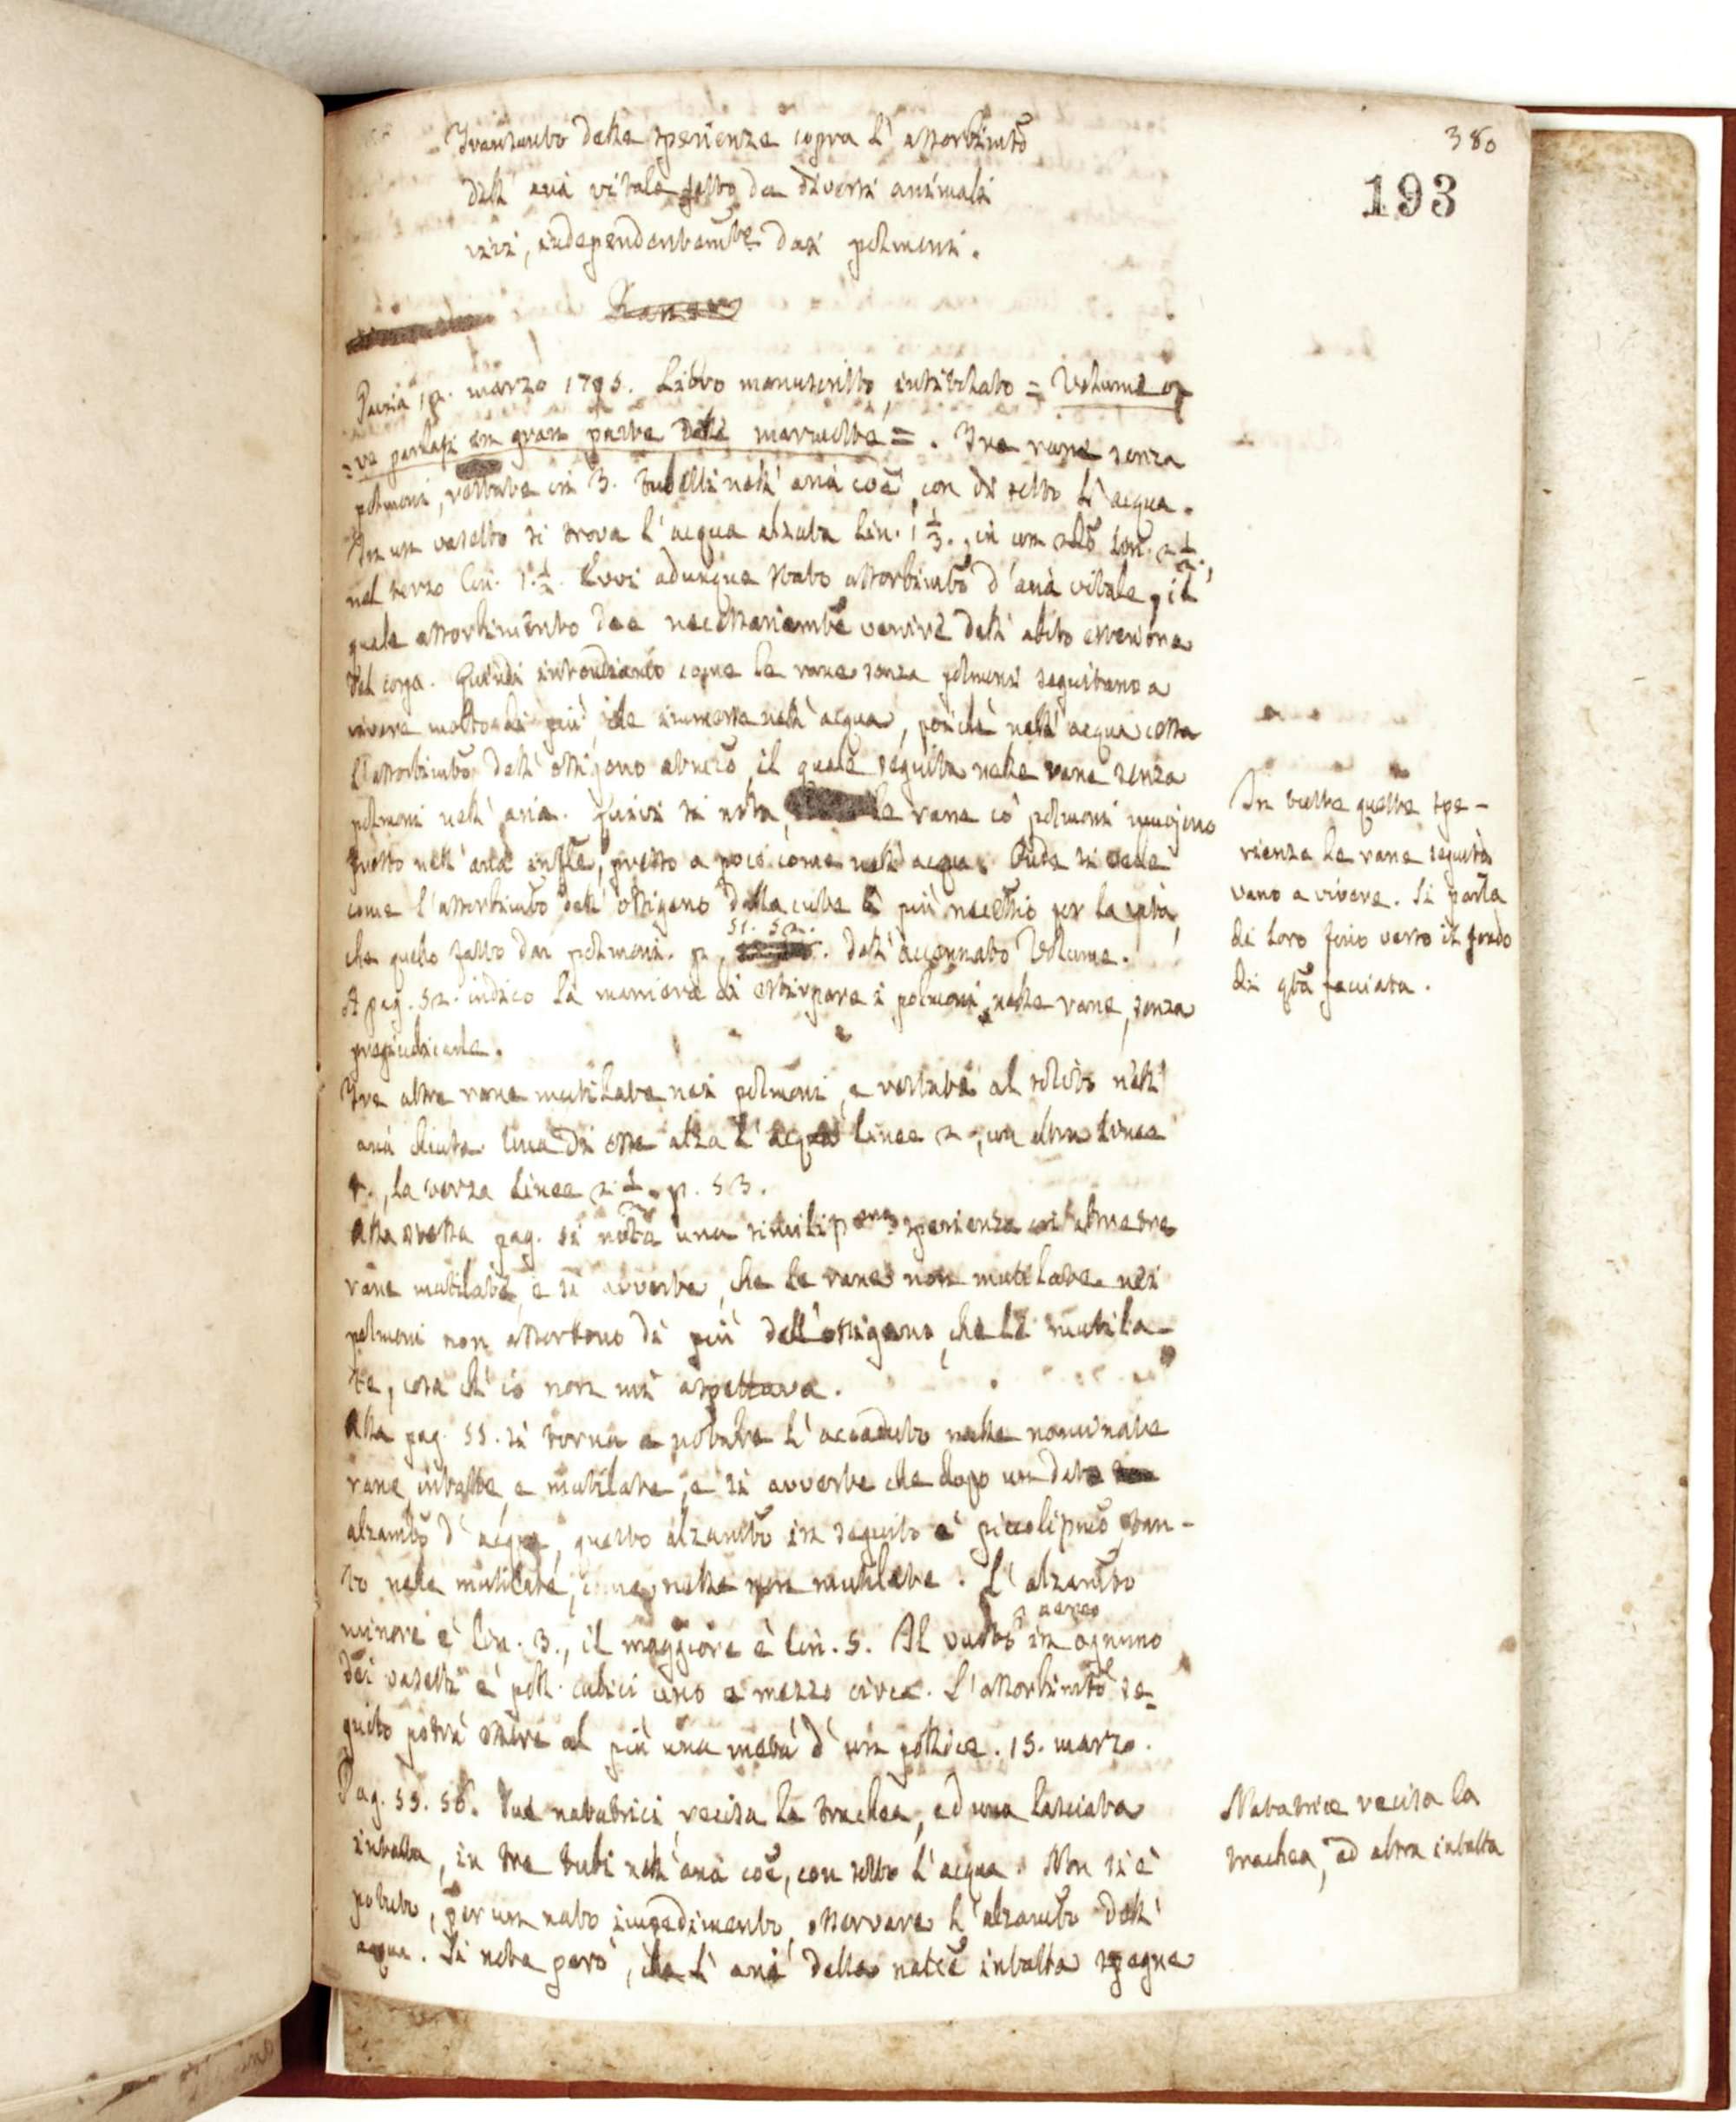 380
193
Transunto delle sperienze sopra l' assorbimto
dell' aria vitale fatto da diversi animali
vivi, independentemte dai polmoni.
Rane
Pavia 12. marzo 1795. Libro manuscritto, intitolato = Volume o-
ve parlasi in gran parte delle marmotte =. Tre rane senza
polmoni, restate in 3. tubetti nell' aria coe, con di sotto l' acqua.
In un vasetto si trova l' acqua alzata lin. 1 1/3., in un altro lin. 2 1/2.,
nel terzo lin. 1. 1/2. Evvi adunque stato assorbimto d' aria vitale, il
quale assorbimento dee necessariamte venire dall' abito esteriore
del corpo. Quindi intendiamo come le rane senza polmoni seguitano a
vivere molto di più, che immerse nell' acqua, poichè nell' acqua cessa
l' assorbimto dell' ossigeno atmco, il quale seguita nelle rane senza
polmoni nell' aria. Quivi si nota, le rane co' polmoni muojono
presto nell' aria infte, presso a poco come nell' acqua. Onde si vede
come l' assorbimto dell' ossigeno dalla cute è più necessio per la vita,
che quello fatto dai polmoni. p. 51. 52. dell' accennato Volume.
A pag. 52. indico la maniera di estirpare i polmoni nelle rane, senza
pregiudicarle.
In tutte queste spe-
rienze le rane seguita
vano a vivere. Si parla
di loro fino verso il fondo
di qta facciata.
Tre altre rane mutilate nei polmoni, e restate al solito nell'
aria chiusa. Una di esse alza l' acqua linee 2., un altra linee
4., la terza linee 2 1/2. p. 53.
Alla stessa pag. si nota una similipma sperienza in altre tre
rane mutilate, e si avverte, che le rane non mutilate nei
polmoni non assorbono di più dell' ossigeno, che le mutila-
te, cosa ch' io non mi aspettava.
Alla pag. 55. si torna a notare l' accaduto nelle nominate
rane intatte, e mutilate, e si avverte che dopo un dato
alzamto d' acqua, questo alzamto in seguito è piccolipmo, tan-
to nelle mutilate, come nelle non mutilate. L' alzamto
minore è lin. 3., il maggiore è lin. 5. Il vuoto aereo in ognuno
dei vasetti è poll. cubici uno e mezzo circa. L' assorbimto se-
guito potrà essere al più una metà d' un pollice. 15. marzo.
Pag. 55. 56. Due natatrici, recisa la trachea, ed una lasciata
intatta, in tre tubi nell' aria coe, con sotto l' acqua. Non si è
potuto, per un nato impedimento, osservare l' alzamto dell'
acqua. Si nota però, che l' aria della natce intatta spegne
Natatrice recisa la
trachea, ed altra intatta